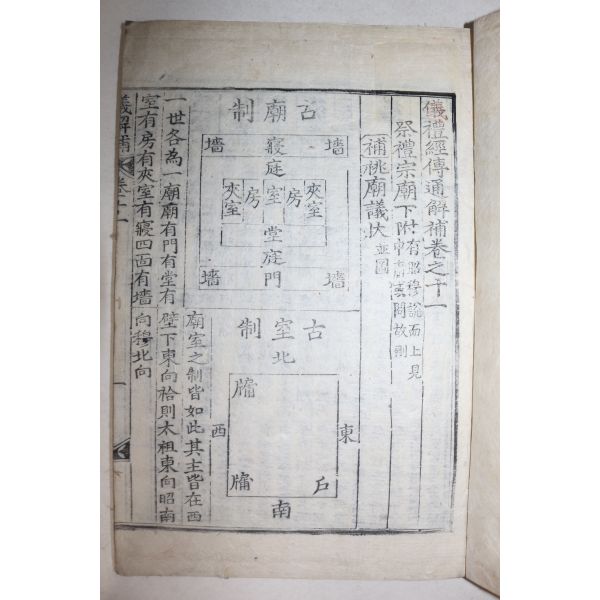 儀禮經傳通解補卷之十一
祭禮宗廟下附有昭穆說而上見
中庸或問故刪
補祧廟議狀並圖
古廟制
墻 寢 墻
庭
夾室 房 室 房 夾室
堂
庭
墻 門 墻
古室制
北
牖
西 東
牖 戶
南
廟室之制皆如此其主皆在西
壁下東向祫則太祖東向昭南
向穆北向
一世各為一廟廟有門有堂有
室有房有夾室有寢四面有墻
儀解補 卷十一